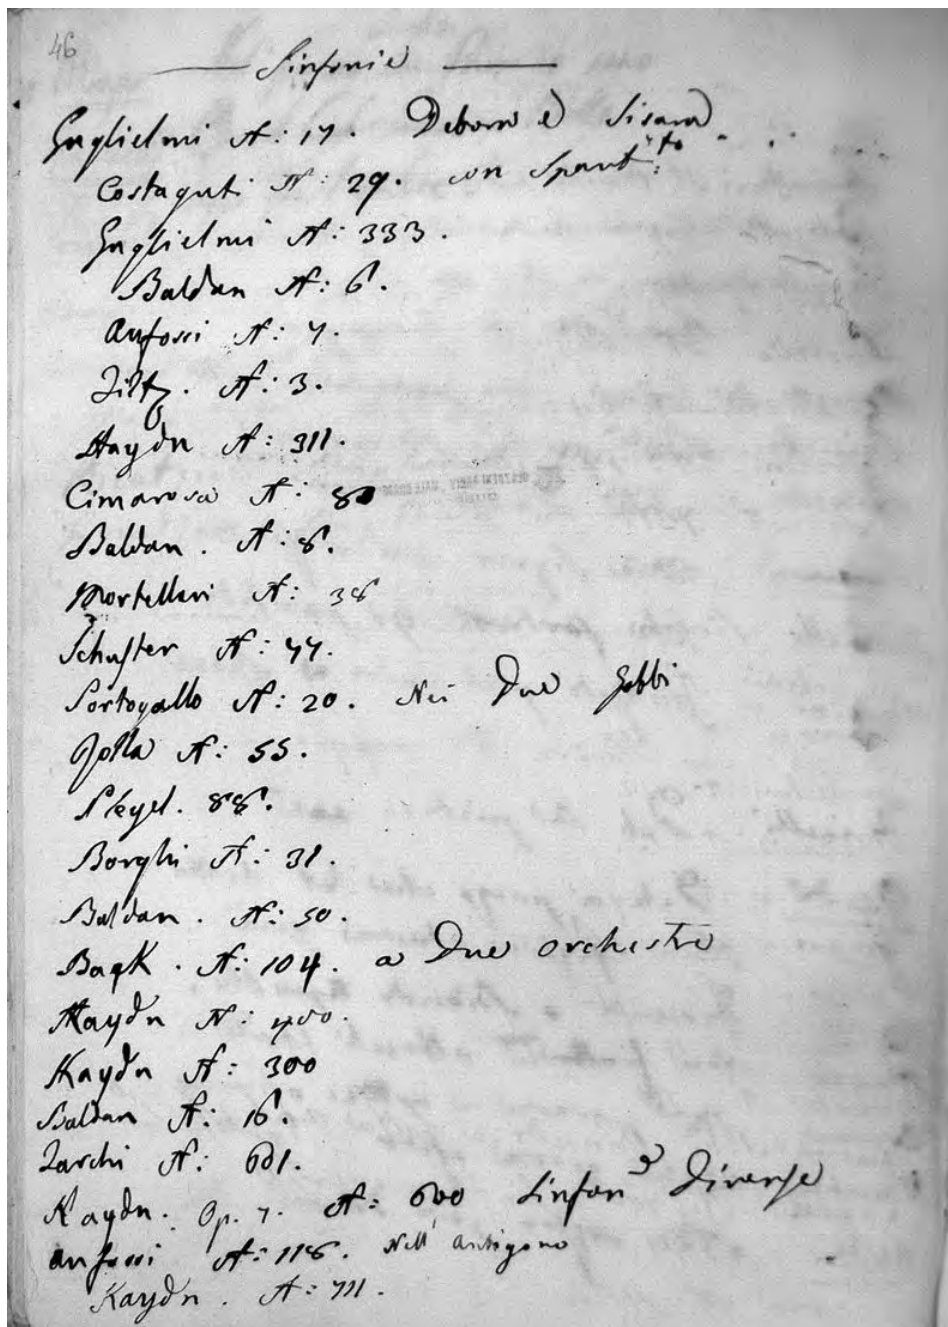 46
Sinfonie
Guglielmi N: 17. Debora e Sisara
Costaguti N: 29. con Spart:to
Guglielmi N: 333.
Baldan N: 6.
Anfossi N: 7.
Ziltz. N: 3.
Haydn N: 311.
Cimarosa N: 80
Baldan. N: 8.
Mortellari N: 38
Schuster N: 47.
Portogallo N: 20. Nei Due Gobbi
N: 55.
Pleyel. 88.
Borghi N: 31.
Baldan. N: 50.
Bach. N: 104. a Due orchestre
Haydn N: 400.
Haydn N: 300
Baldan N: 16.
Zarchi N: 601.
Haydn. Op. 7. N: 600 Sinfone Diverse
Anfossi N: 118. Nell' Antigono
Haydn. N: 711.